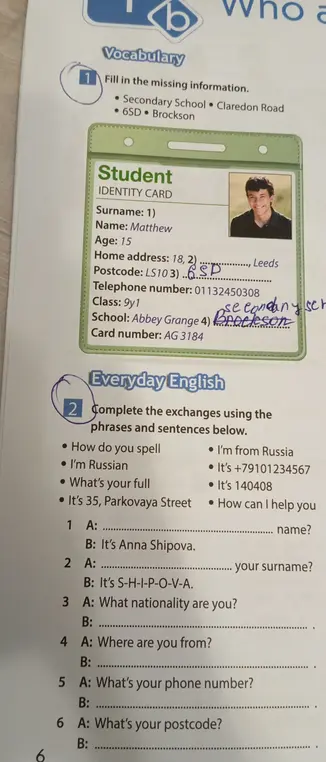 1 b Who a
Vocabulary
1 Fill in the missing information.
• Secondary School • Claredon Road
• 6SD • Brockson
Student
IDENTITY CARD
Surname: 1)
Name: Matthew
Age: 15
Home address: 18, 2) ................, Leeds
Postcode: LS10 3) ..6SD..................
Telephone number: 01132450308
Class: 9y1
secondary sch
School: Abbey Grange 4) Brockson
Card number: AG 3184
Everyday English
2 Complete the exchanges using the
phrases and sentences below.
• How do you spell • I'm from Russia
• I'm Russian • It's +79101234567
• What's your full • It's 140408
• It's 35, Parkovaya Street • How can I help you
1 A: ................................................ name?
B: It's Anna Shipova.
2 A: ..................................... your surname?
B: It's S-H-I-P-O-V-A.
3 A: What nationality are you?
B: .............................................................. .
4 A: Where are you from?
B: .............................................................. .
5 A: What's your phone number?
B: .............................................................. .
6 A: What's your postcode?
B: .............................................................. .
6